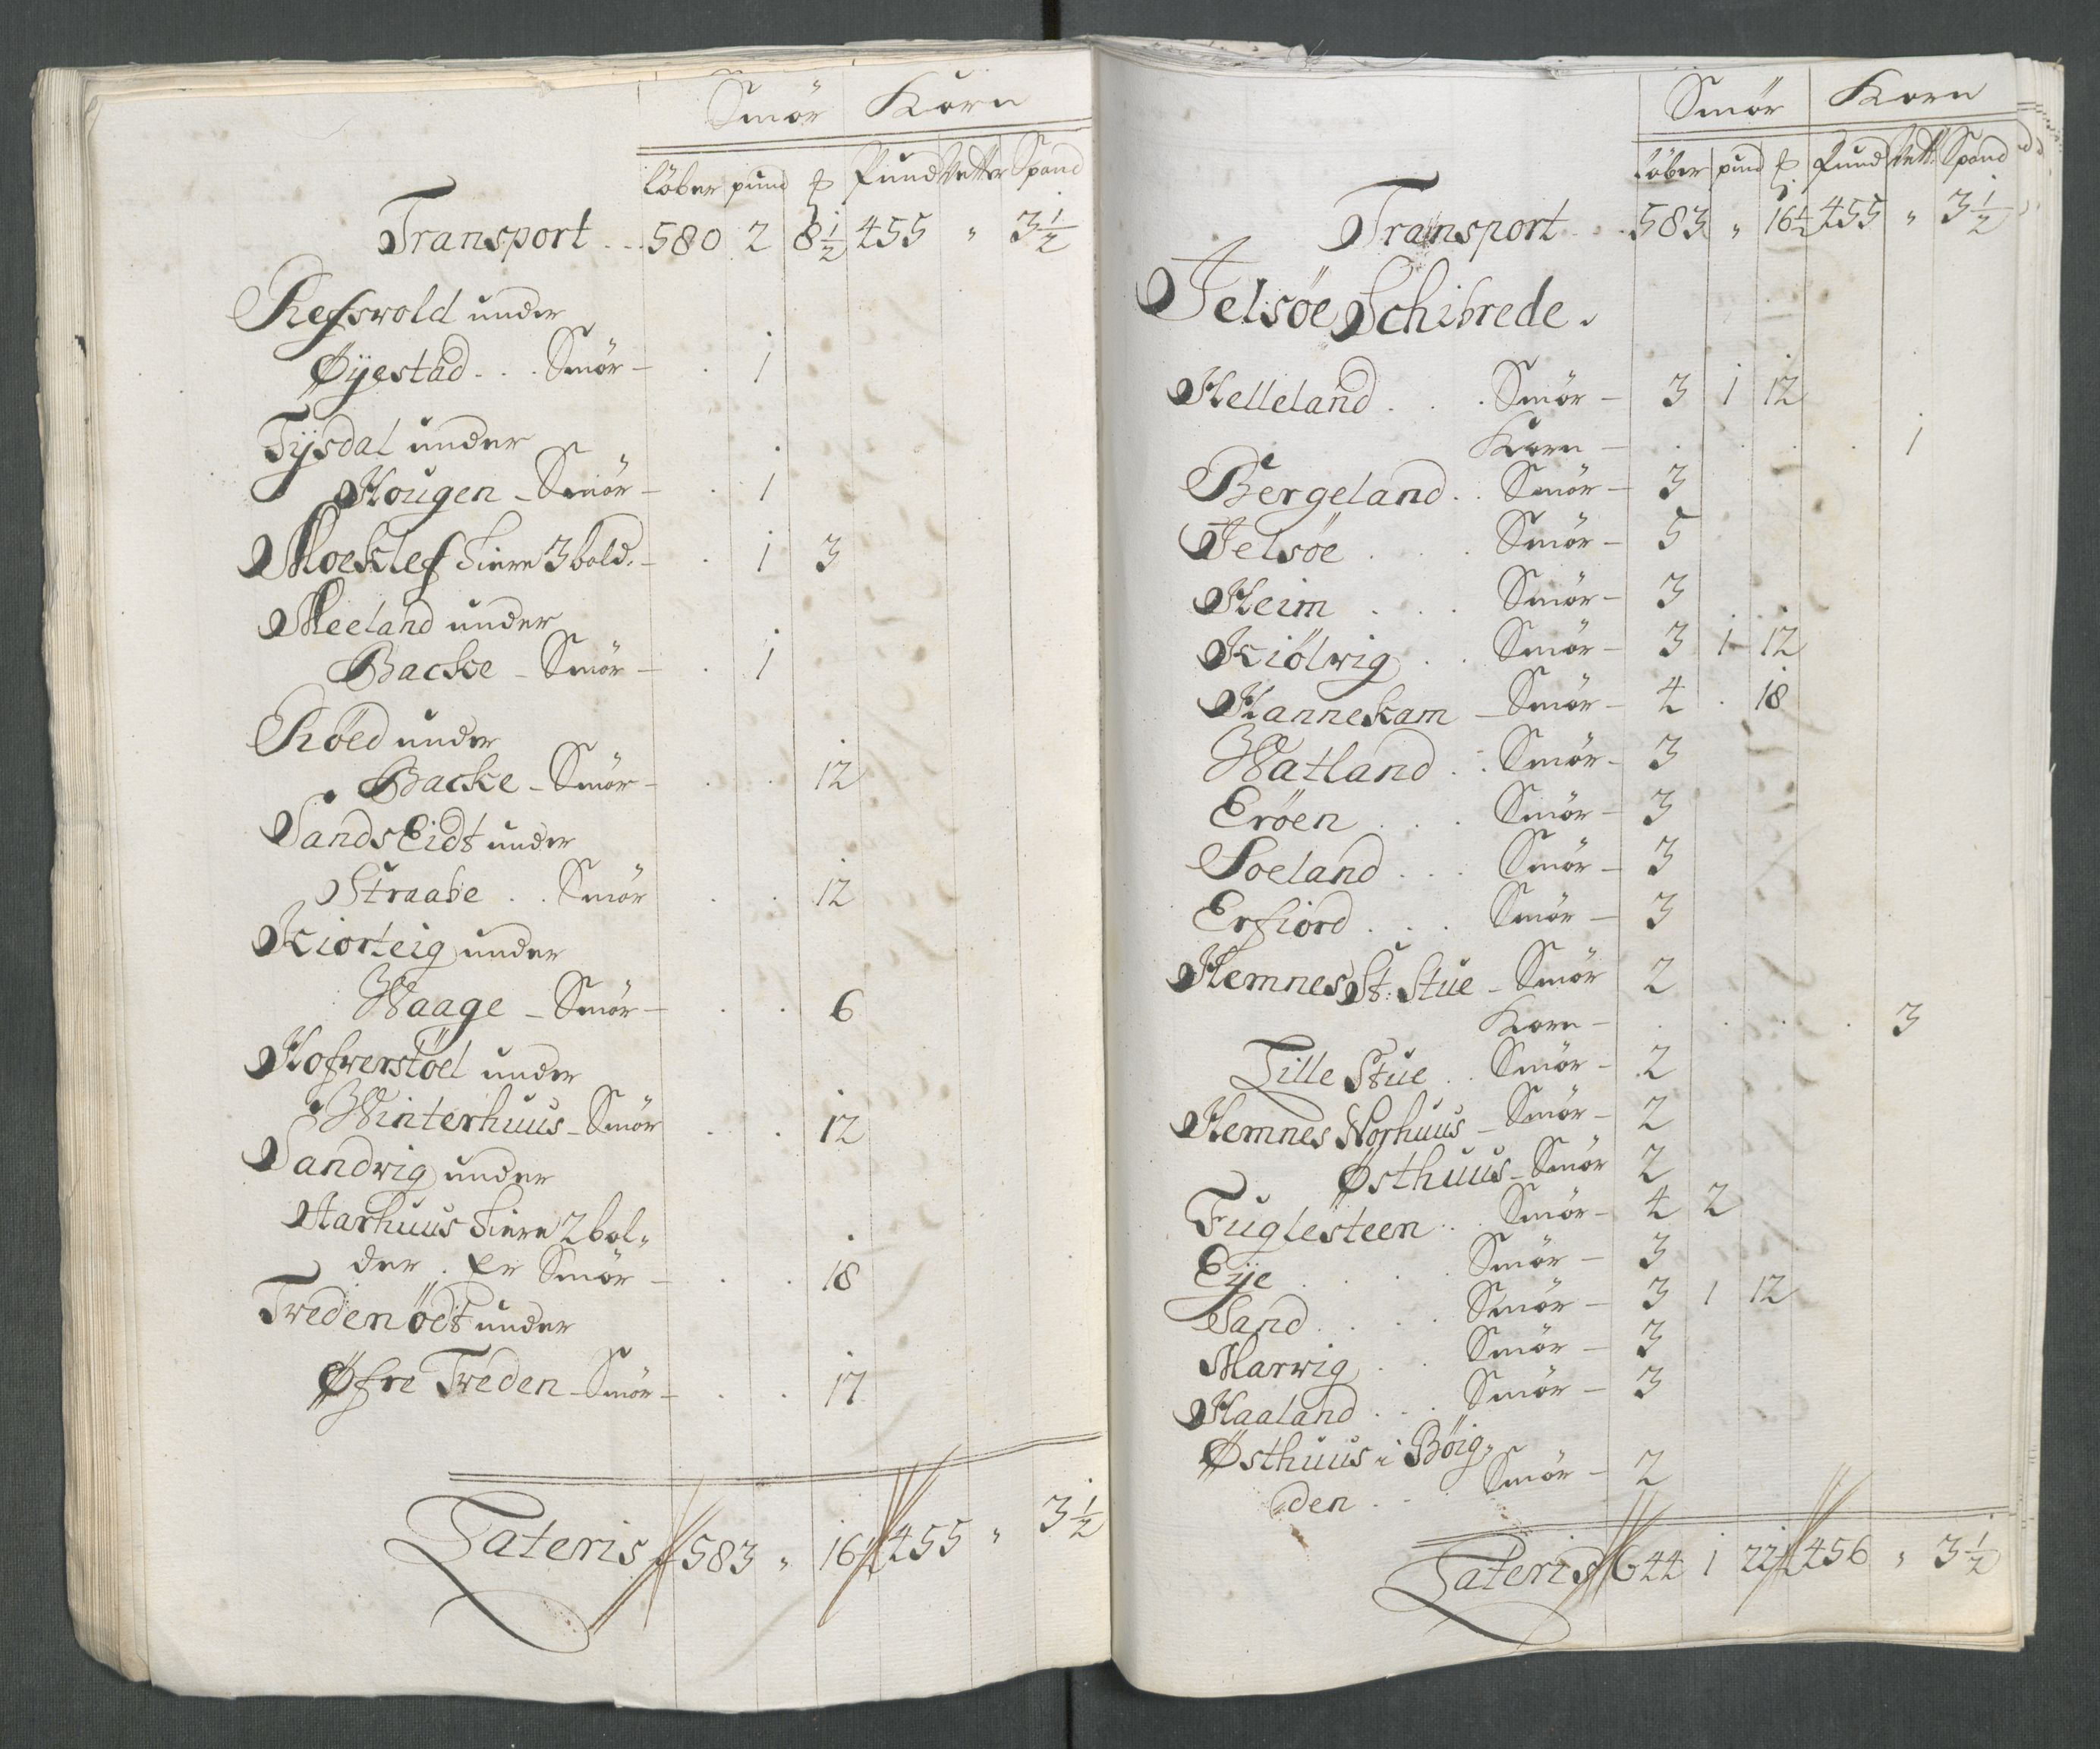 Smör Korn
löber pund ℔ Pund Vetter Spand
Transport . . 580 2 8½ 455 " 3½
Refswold under
Øÿestad . . . Smör — . 1
Tÿsdal under
Hougen - Smör — . 1
Moeklef 3 bold. — . 1 3
Meeland under
Backe - Smör — . 1
Röed under
Backe - Smör — . . 12
Sands Eidt under
Straabe . . Smör . . 12
Kiorteig under
Waage - Smör — . . 6
Hofwerstöel under
Winterhuus - Smör . . 12
Sandwig under
Aarhuus 2 bol"
der . Er Smör — . . 18
Tweden ödt under
Øfre Tweden - Smör — . . 17
Lateris 583 " 16½ 455 " 3½
Smör Korn
löber pund ℔ Pund Vett. Spand
Transport . . 583 " 16½ 455 " 3½
Jelsöe Schibrede .
Helleland . . . Smör — 3 1 12
Korn — . . . . 1
Bergeland . . Smör — 3
Jelsöe . . . Smör — 5
Heim . . . Smör — 3
Kiölwig . . Smör — 3 1 12
Hannekam - Smör — 4 . 18
Watland . . Smör — 3
Eröen . . . Smör — 3
Soeland . . . Smör — 3
Erfiord . . . Smör — 3
Hemnes St: Stue - Smör 2
Korn — . . . . 3
Lille Stue . . Smör — 2
Hemnes Norhuus - Smör — 2
Østhuus - Smör 2
Fuglesteen . . Smör — 4 2
Eÿe . . . . Smör — 3
Sand . . . . Smör — 3 1 12
Marwig . . Smör — 3
Haaland . . . Smör — 3
Østhuus i Böig"
den . . Smör — 2
Lateris 644 1 22½ 456 " 3½